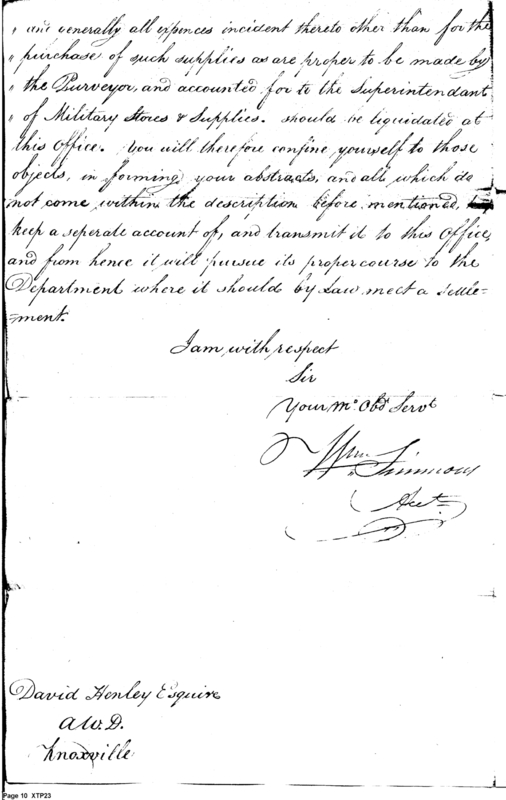 " and generally all expences incident thereto other than for the
" purchase of such supplies as are proper to be made by
" the Purveyor, and accounted for to the Superintendant
" of Military Stores & Supplies. should be liquidated at
this Office. You will therefore confine yourself to those
objects, in forming your abstracts, and all which do
not come within the description before mentioned,
keep a seperate account of, and transmit it to this Office,
and from hence it will pursue its proper course to the
Department where it should by Law meet a settle=
=ment.
I am, with, respect
Sir
Your Mo. Obd. Servt
Wm. Simmons
Acct.
David Henley Esquire
A.W.D.
Knoxville
Page 10 XTP23